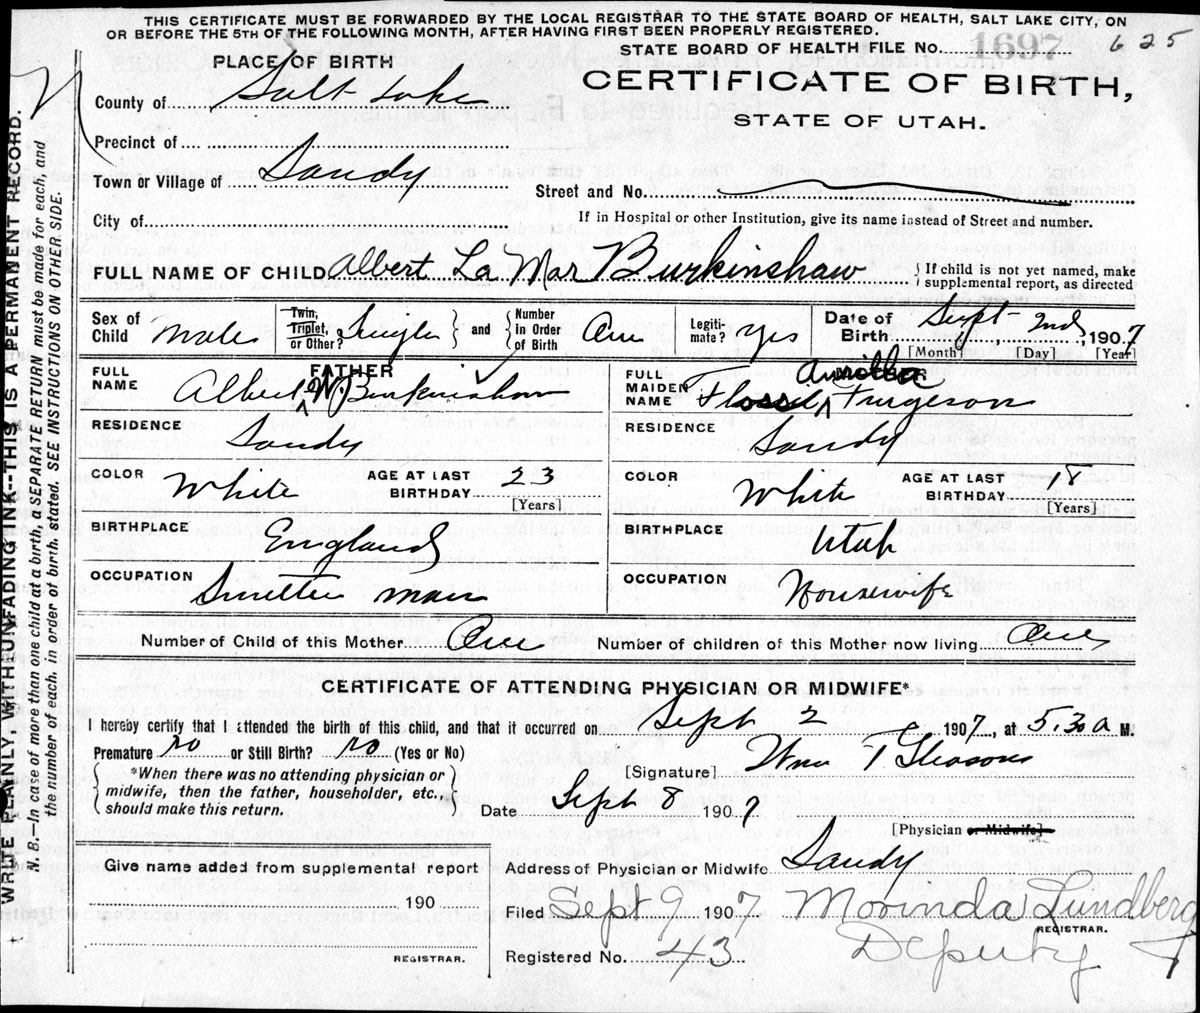 THIS CERTIFICATE MUST BE FORWARDED BY THE LOCAL REGISTRAR TO THE STATE BOARD OF HEALTH, SALT LAKE CITY, ON
OR BEFORE THE 5TH OF THE FOLLOWING MONTH, AFTER HAVING FIRST BEEN PROPERLY REGISTERED.
STATE BOARD OF HEALTH FILE No. 1697 625
PLACE OF BIRTH
CERTIFICATE OF BIRTH,
STATE OF UTAH.
County of Salt Lake
Precinct of
Town or Village of Sandy
Street and No.
City of
If in Hospital or other Institution, give its name instead of Street and number.
FULL NAME OF CHILD Albert La Mar Burkinshaw
If child is not yet named, make
supplemental report, as directed
Sex of Child Male
Twin, Triplet, or Other? Single and Number in Order of Birth One
Legitimate? Yes
Date of Birth Sept 2nd, 1907
[Month] [Day] [Year]
FATHER
FULL NAME Albert W. Burkinshaw
RESIDENCE Sandy
COLOR White AGE AT LAST BIRTHDAY 23
[Years]
BIRTHPLACE England
OCCUPATION Smelter man
MOTHER
FULL MAIDEN NAME Flossie Furgeson
RESIDENCE Sandy
COLOR White AGE AT LAST BIRTHDAY 18
[Years]
BIRTHPLACE Utah
OCCUPATION Housewife
Number of Child of this Mother One
Number of children of this Mother now living One
CERTIFICATE OF ATTENDING PHYSICIAN OR MIDWIFE*
I hereby certify that I attended the birth of this child, and that it occurred on Sept 2 1907, at 5.30 a M.
Premature no or Still Birth? no (Yes or No)
*When there was no attending physician or
midwife, then the father, householder, etc.,
should make this return.
[Signature] Wm T. Gleason
Date Sept 8 1907
[Physician or Midwife]
Give name added from supplemental report
190
REGISTRAR.
Address of Physician or Midwife Sandy
Filed Sept 9 1907 Morinda Lundberg
REGISTRAR.
Deputy
Registered No. 43
WRITE PLAINLY, WITH UNFADING INK--THIS IS A PERMANENT RECORD.
N. B.--In case of more than one child at a birth, a SEPARATE RETURN must be made for each, and
the number of each, in order of birth, stated. SEE INSTRUCTIONS ON OTHER SIDE.